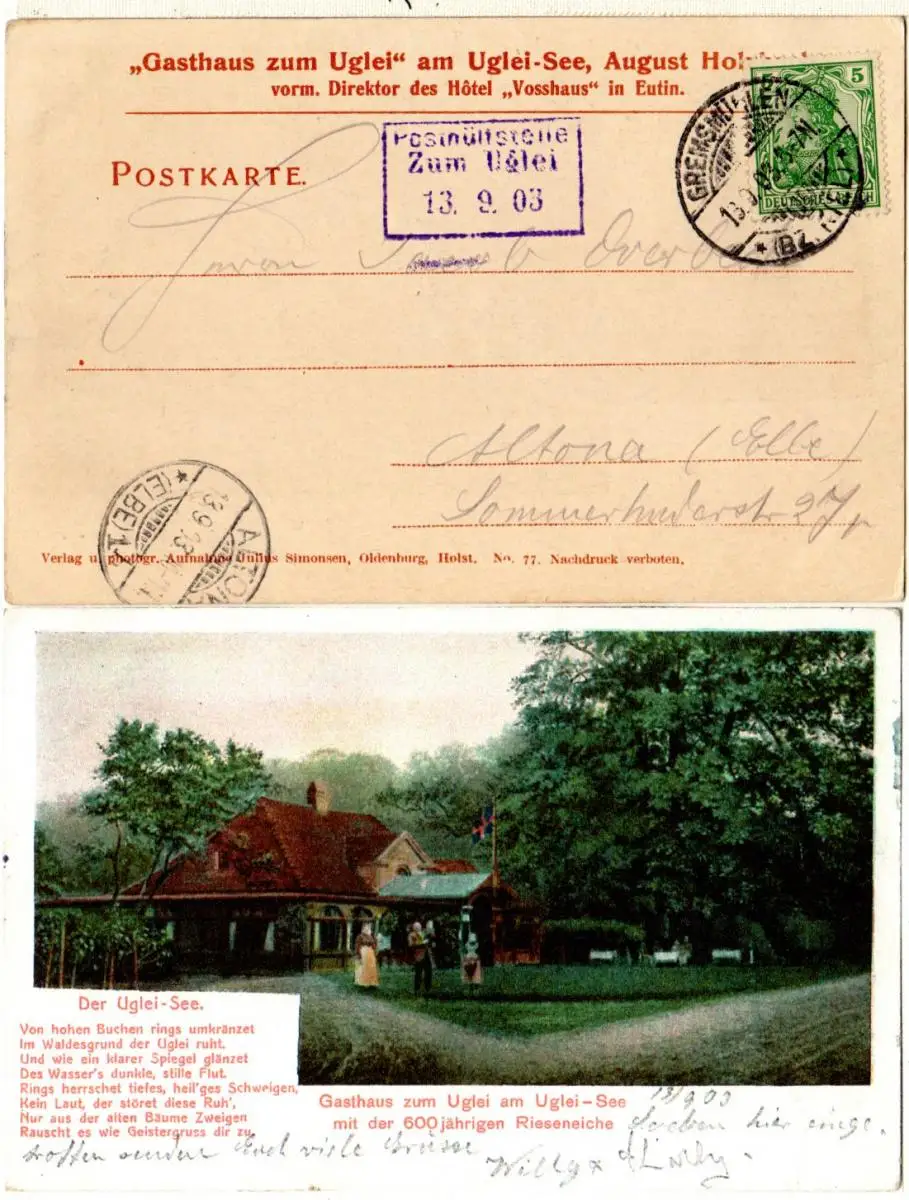 „Gasthaus zum Uglei“ am Uglei-See, August
vorm. Direktor des Hôtel „Vosshaus“ in Eutin.
POSTKARTE.
Posthülfstelle
Zum Uglei
13. 9. 03
5
DEUTSCHES REICH
GREMSMÜHLEN
13.9.03
* (BZ. KIEL) *
Herrn
Altona (Elbe)
ALTONA
* (ELBE) 1.
13.9.03
Verlag u. photogr. Aufnahme Julius Simonsen, Oldenburg, Holst. No. 77. Nachdruck verboten.
Der Uglei-See.
Von hohen Buchen rings umkränzet
Im Waldesgrund der Uglei ruht.
Und wie ein klarer Spiegel glänzet
Des Wasser's dunkle, stille Flut.
Rings herrschet tiefes, heil'ges Schweigen,
Kein Laut, der störet diese Ruh',
Nur aus der alten Bäume Zweigen
Rauscht es wie Geistergruss dir zu.
Gasthaus zum Uglei am Uglei-See
mit der 600jährigen Rieseneiche
13/9 03
Soeben hier einge-
troffen senden Euch viele Grüsse
Willy